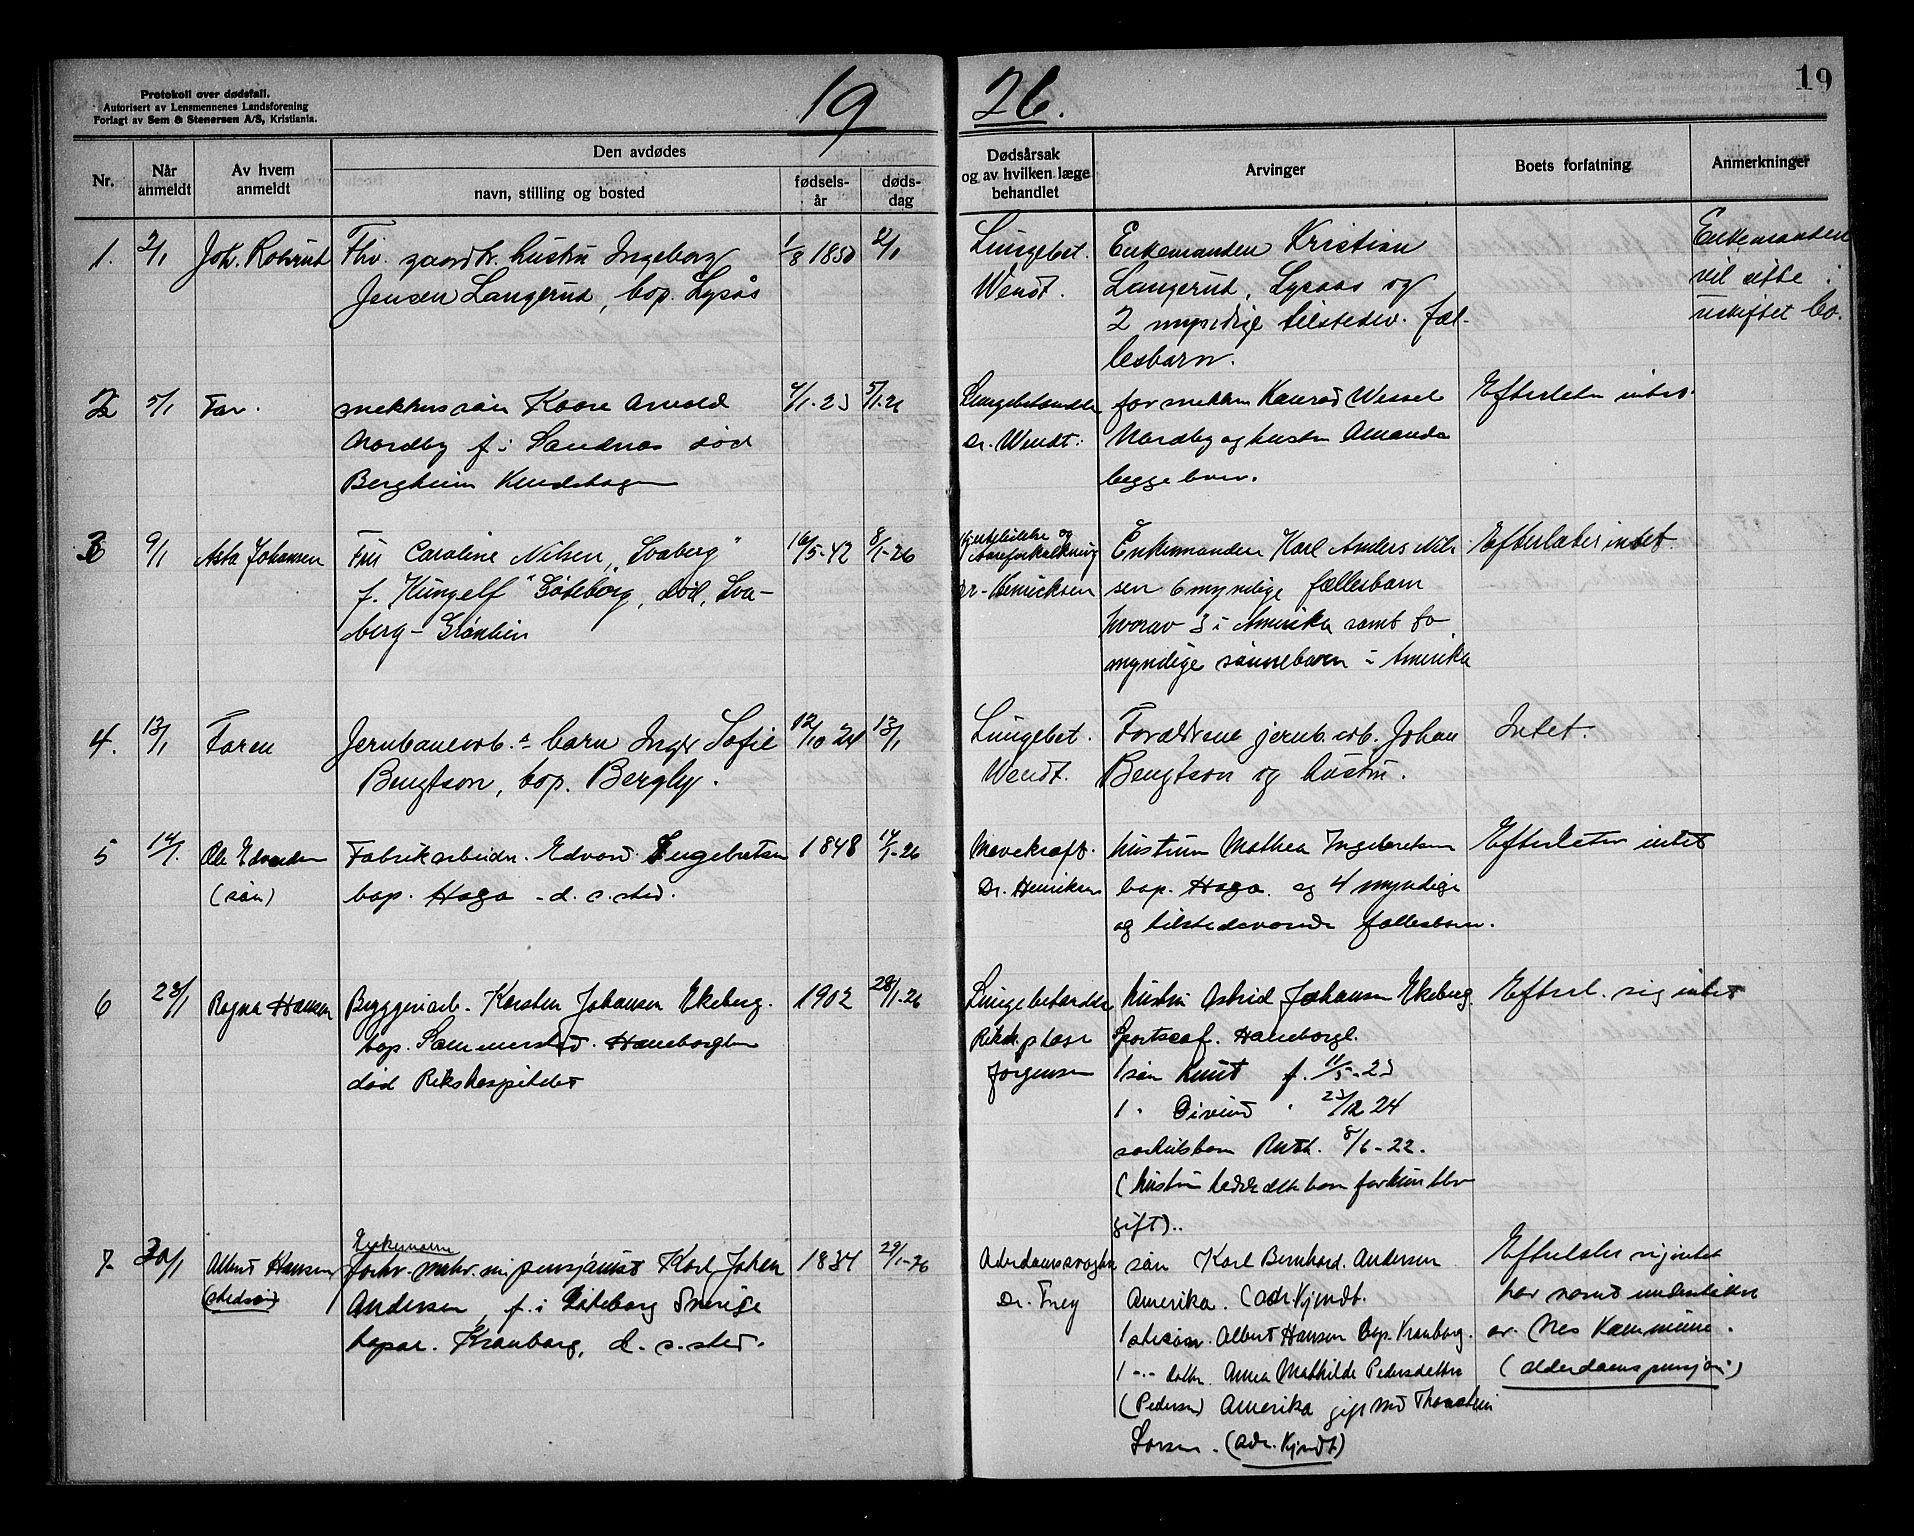 Protokoll over dødsfall.
Autorisert av Lensmennenes Landsforening
Forlagt av Sem & Stenersen A/S, Kristiania.
1926.
19
Nr.
Når anmeldt
Av hvem anmeldt
Den avdødes
navn, stilling og bosted
fødselsår
dødsdag
Dødsårsak
og av hvilken læge
behandlet
Arvinger
Boets forfatning
Anmerkninger
1. 2/1 Joh. Fhv. gaardbr. hustru Ingeborg 1/8 1850 2/1
Jensen Langerud, bop. Lysås
Lungebet.
Wendt.
Enkemanden Kristian
Langerud, Lysaas og
2 myndige tilstedev. fæl-
lesbarn.
Enkemanden
vil sitte i
uskiftet bo.
2 5/1 Far. søn Kaare Arvold 5/1.26
Nordby f. i Sandnes død
Bergheim
Lungebetændelse
Dr. Wendt.
Konrad Wessel
Nordby og hustru Amanda
begge
Efterlater intet.
3 9/1 Asta Johansen Fru Caroline Nilsen, "Svaberg" 16/5-42 8/1-26
f. "Kungelf" Gøteborg, død, Sva-
berg-
Aareforkalkning
Dr. Henricksen
Enkemanden Karl Anders Nil-
sen 6 myndige fællesbarn
hvorav 3 i Amerika samt to
myndige sønnebarn i Amerika
Efterlater intet.
4. 13/1 Faren Jernbanearb.s barn Inger Sofie 12/10 24 13/1
Bengtson, bop. Bergly.
Lungebet.
Wendt.
Forældrene jernb.arb. Johan
Bengtson og hustru.
Intet.
5 14/1. Ole Edvardsen Fabrikarbeider. Edvard Engebretsen 1848 14/1-26
(søn) bop. Haga - d. s. sted.
Mavekræft.
Dr. Henriksen
hustrun Mathea Ingebretsen
bop. Haga. og 4 myndige
og tilstedeværende fællesbarn.
Efterlater intet
6 28/1 Ragna Hansen Bryggeriarb. Karsten Johansen Ekeberg. 1902 28/1-26
bop. Sammerstad.
død Rikshospitalet
Lungebetændelse
Jørgensen
hustru Astrid Johansen Ekeberg
1 søn Knut f. 11/5-23
1 " Eivind " 23/12 24
særkulsbarn Ruth. 8/6-22.
(hustrun
gift)..
Efterl. sig intet
7 30/1 Albert Hansen
(stedsøn)
Enkemann
forhv. pensjonist Karl Johan 1834 29/1-26
Andersen, f. i Gøteborg Sverige
bopæl. Kronborg, d. s. sted.
Alderdomssvaghet
Dr. Frey
søn Karl Bernhard Andersen
Amerika. (adr. Kjendt.
1 stesøn. Albert Hansen bop. Kronborg.
1 -"- datter Anna Mathilde Pedersdatter
(Pedersen) Amerika gift med Thorstein
Larsen. (adr. Kjendt)
Efterlater sig intet
har vært understøttet
av Nes Kommune.
(alderdomspensjon)